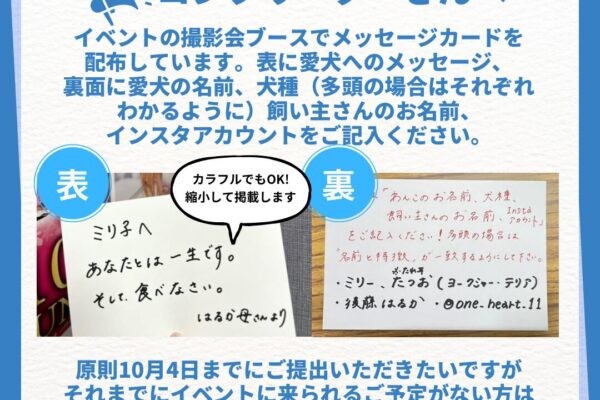 イベントの撮影会ブースでメッセージカードを
配布しています。表に愛犬へのメッセージ、
裏面に愛犬の名前、犬種（多頭の場合はそれぞれ
わかるように）飼い主さんのお名前、
インスタアカウントをご記入ください。
表
カラフルでもOK!
縮小して掲載します
裏
ミリ子へ
あなたとは一生です。
そして、食べなさい。
はるか母さんより
「わんこのお名前、犬種、
飼い主さんのお名前、Instaアカウント」
をご記入ください！多頭の場合は
「名前と特徴」が一致するようにして下さい。
・ミリー、たつお（ヨークシャー・テリア）
・須藤はるか ・@one_heart_11
原則10月4日までにご提出いただきたいですが
それまでにイベントに来られるご予定がない方は